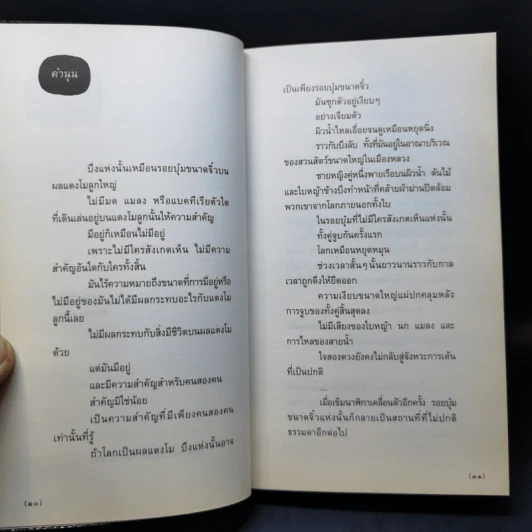 คำนูน
บึงแห่งนั้นเหมือนรอยบุ๋มขนาดจิ๋วบน
ผลแตงโมลูกใหญ่
ไม่มีมด แมลง หรือแบคทีเรียตัวใด
ที่เดินเล่นอยู่บนแตงโมลูกนั้นให้ความสำคัญ
มีอยู่ก็เหมือนไม่มีอยู่
เพราะไม่มีใครสังเกตเห็น ไม่มีความ
สำคัญอันใดกับใครทั้งสิ้น
มันไร้ความหมายถึงขนาดที่การมีอยู่หรือ
ไม่มีอยู่ของมันไม่ได้มีผลกระทบอะไรกับแตงโม
ลูกนี้เลย
ไม่มีผลกระทบกับสิ่งมีชีวิตบนผลแตงโม
ด้วย
แต่มันมีอยู่
และมีความสำคัญสำหรับคนสองคน
สำคัญมิใช่น้อย
เป็นความสำคัญที่มีเพียงคนสองคน
เท่านั้นที่รู้
ถ้าโลกเป็นผลแตงโม บึงแห่งนั้นอาจ
(๑๐)
เป็นเพียงรอยบุ๋มขนาดจิ๋ว
มันซุกตัวอยู่เงียบๆ
อย่างเจียมตัว
ผิวน้ำไหลเอื่อยจนดูเหมือนหยุดนิ่ง
ราวกับบึงลับ ทั้งที่มันอยู่ในอาณาบริเวณ
ของสวนสัตว์ขนาดใหญ่ในเมืองหลวง
ชายหญิงคู่หนึ่งพายเรือบนผิวน้ำ ต้นไม้
และใบหญ้าข้างบึงทำหน้าที่คล้ายผ้าม่านปิดล้อม
พวกเขาจากโลกภายนอกทั้งใบ
ในรอยบุ๋มที่ไม่มีใครสังเกตแห่งนั้น
ทั้งคู่จูบกันครั้งแรก
โลกเหมือนหยุดหมุน
ช่วงเวลาสั้นๆ นั้นยาวนานราวกับกาล
เวลาถูกดึงให้ยืดออก
ความเงียบขนาดใหญ่แผ่ปกคลุมหลัง
การจูบของทั้งคู่สิ้นสุดลง
ไม่มีเสียงของใบหญ้า นก แมลง และ
การไหลของสายน้ำ
ใจสองดวงยังคงไม่กลับสู่จังหวะการเต้น
ที่เป็นปกติ
...
เมื่อเข็มนาฬิกาเคลื่อนตัวอีกครั้ง รอยบุ๋ม
ขนาดจิ๋วแห่งนั้นก็กลายเป็นสถานที่ที่ไม่ปกติ
ธรรมดาอีกต่อไป
(๑๑)